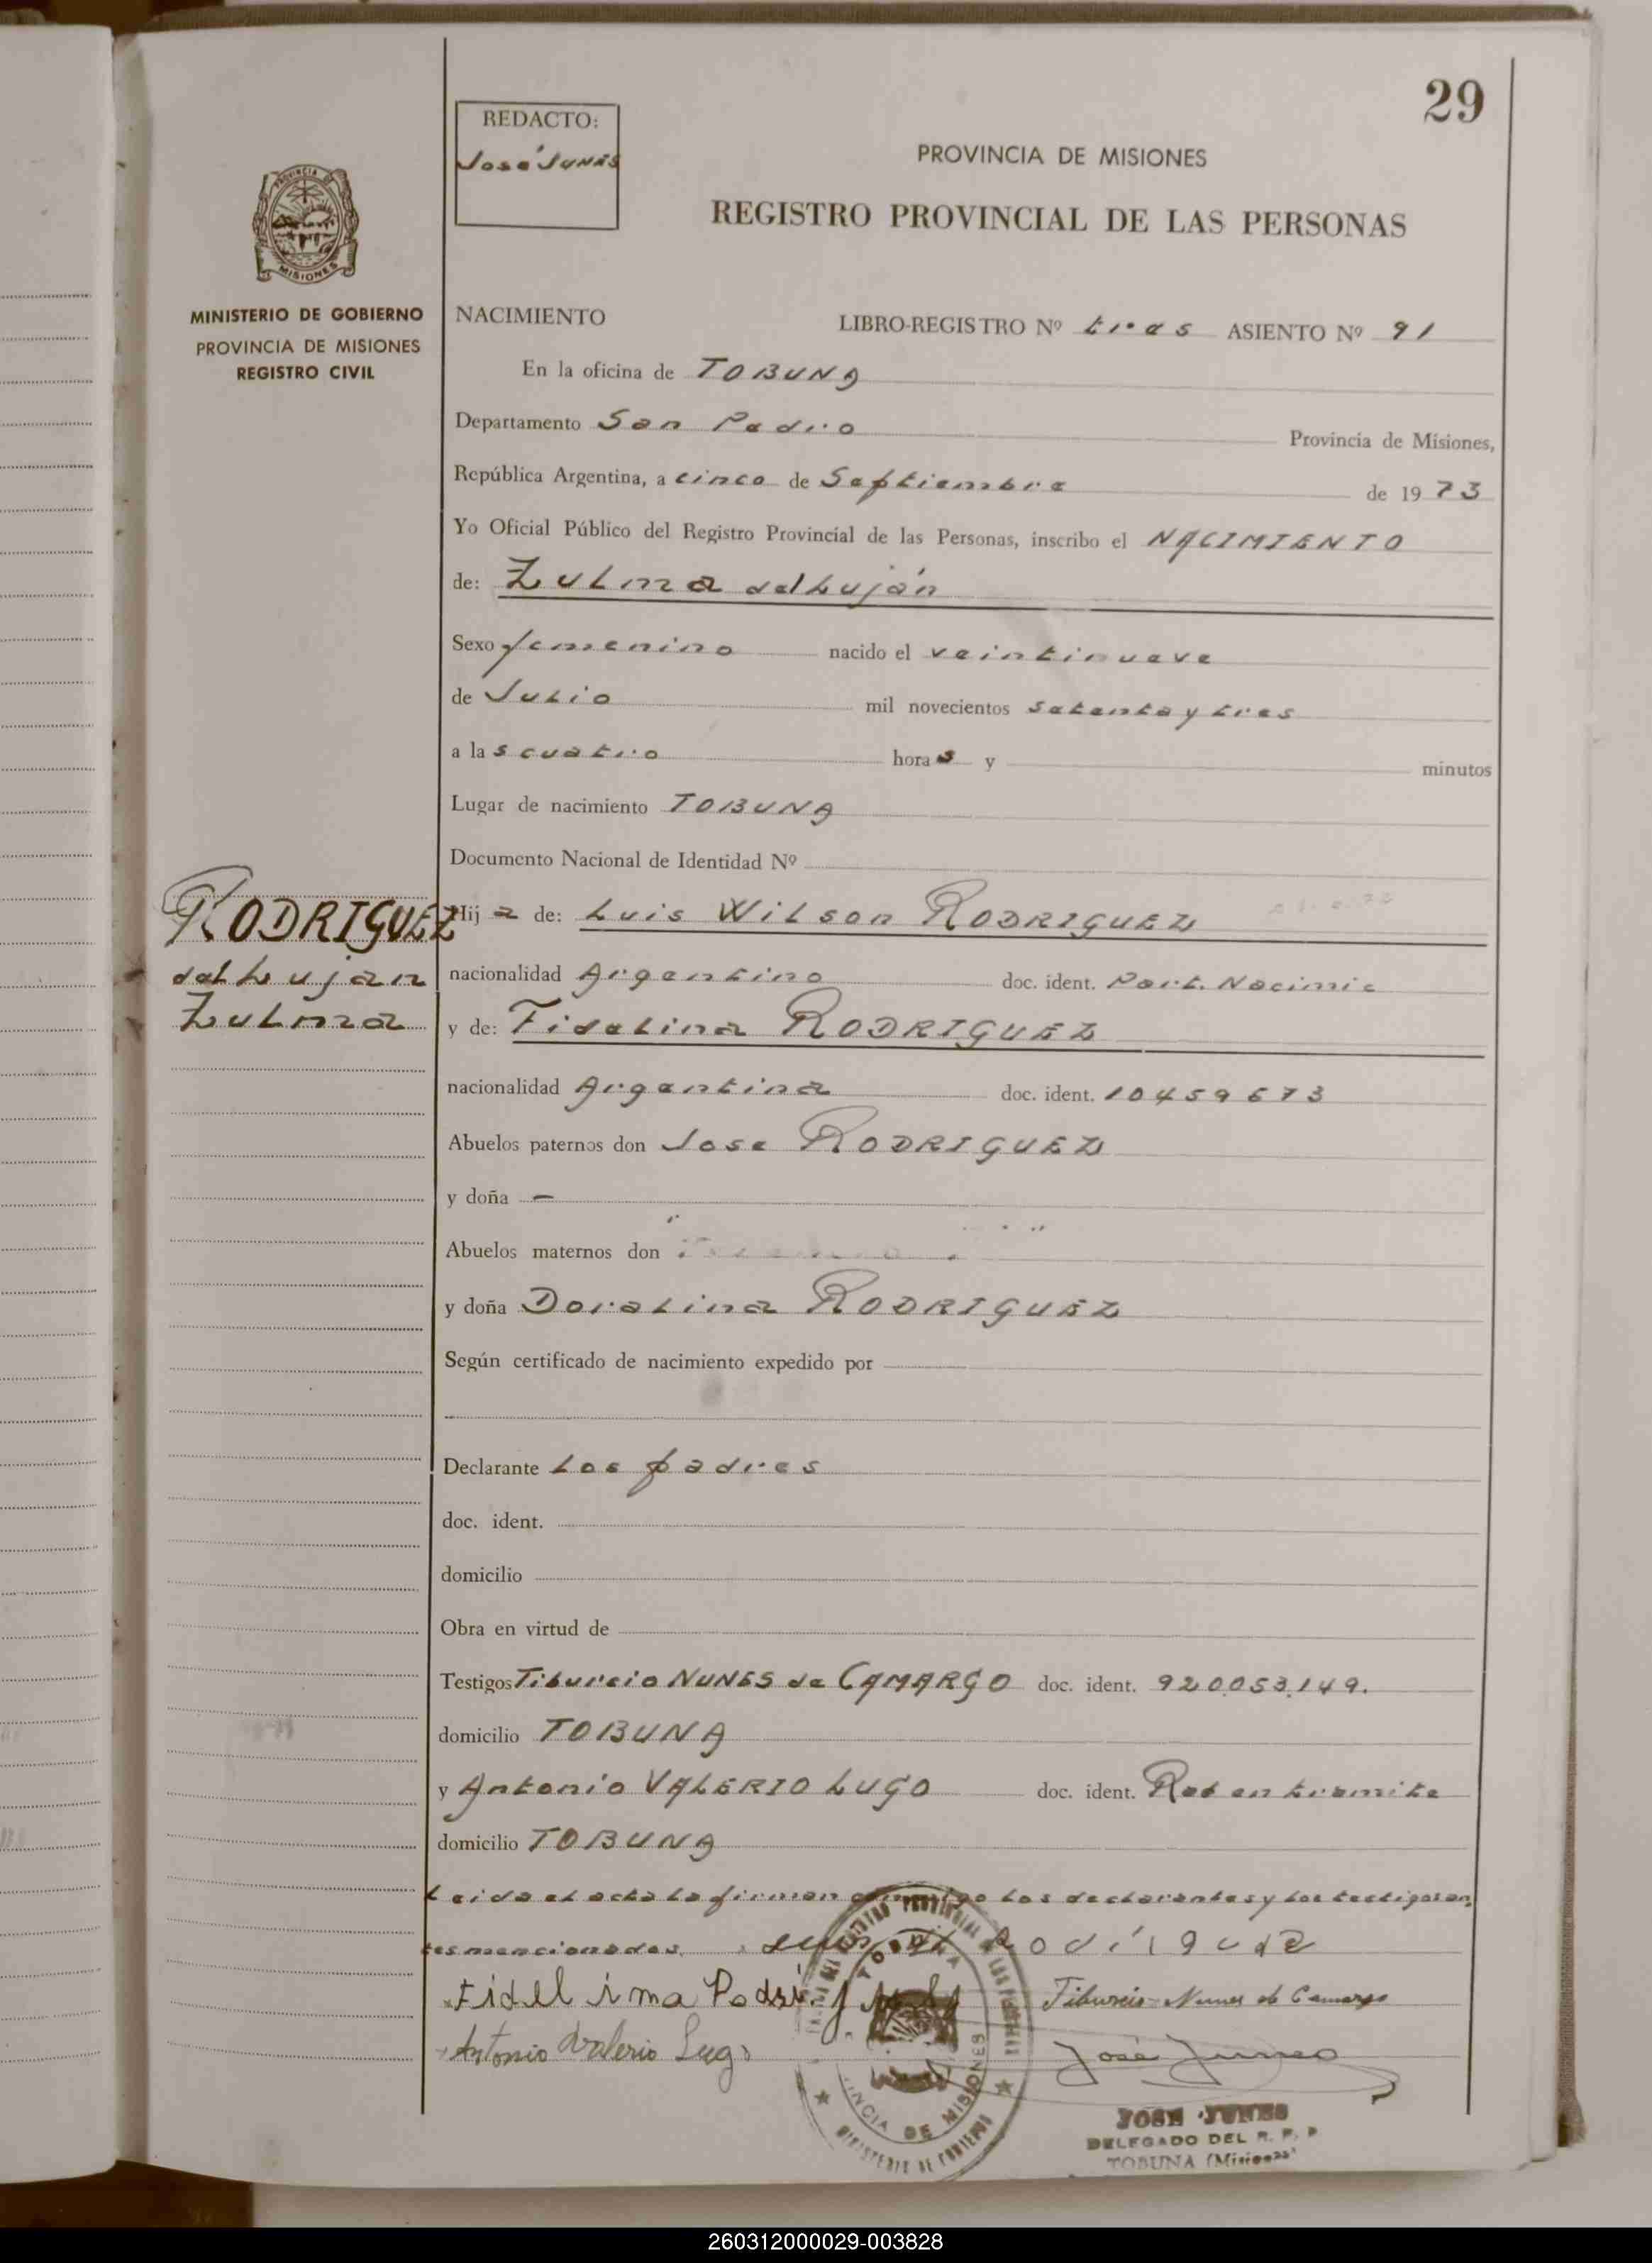 29
REDACTO:
José Junes
PROVINCIA DE MISIONES
REGISTRO PROVINCIAL DE LAS PERSONAS
PROVINCIA DE
MISIONES
MINISTERIO DE GOBIERNO
PROVINCIA DE MISIONES
REGISTRO CIVIL
NACIMIENTO LIBRO-REGISTRO Nº tres ASIENTO Nº 91
En la oficina de TOBUNA
Departamento San Pedro Provincia de Misiones,
República Argentina, a cinco de Septiembre de 1973
Yo Oficial Público del Registro Provincial de las Personas, inscribo el NACIMIENTO
de: Zulma del Luján
Sexo femenino nacido el veintinueve
de Julio mil novecientos setenta y tres
a las cuatro horas y minutos
Lugar de nacimiento TOBUNA
Documento Nacional de Identidad Nº
RODRIGUEZ
del Lujan
Zulma
Hija de: Luis Wilson RODRIGUEZ
nacionalidad Argentino doc. ident. Part. Nacimie
y de: Fidelina RODRIGUEZ
nacionalidad Argentina doc. ident. 10459673
Abuelos paternos don Jose RODRIGUEZ
y doña —
Abuelos maternos don
y doña Doralina RODRIGUEZ
Según certificado de nacimiento expedido por
Declarante Los padres
doc. ident.
domicilio
Obra en virtud de
Testigos Tiburcio NUNES de CAMARGO doc. ident. 920.053.149.
domicilio TOBUNA
y Antonio VALERIO LUGO doc. ident. Rad en tramite
domicilio TOBUNA
Leida el acta la firman conmigo los declarantes y los testigos an,
tes mencionados. Luis Rodríguez
Fidelima Podri Tiburcio Nunes de Camargo
Antonio Valerio Lugo José Junes
TOBUNA
PROVINCIA DE MISIONES
MINISTERIO DE GOBIERNO
JOSE JUNES
DELEGADO DEL R. P. P
TOBUNA (Misiones)
260312000029-003828